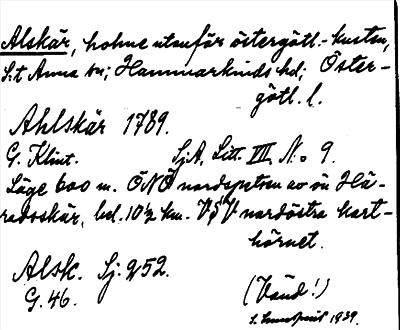 Alskär, holme utanför östergötl.-kusten,
S:t Anna sn; Hammarkinds hd; Öster-
götl. l.
Ahlskär 1789.
G. Klint. SjA. Litt. VIII N:o 9.
Läge 600 m. ÖNÖ nordspetsen av ön Hä-
radsskär, bel. 10½ km. VSV nordöstra kart-
hörnet.
Alsk. Sj. 252.
G. 46.
(Vänd!)
1939.